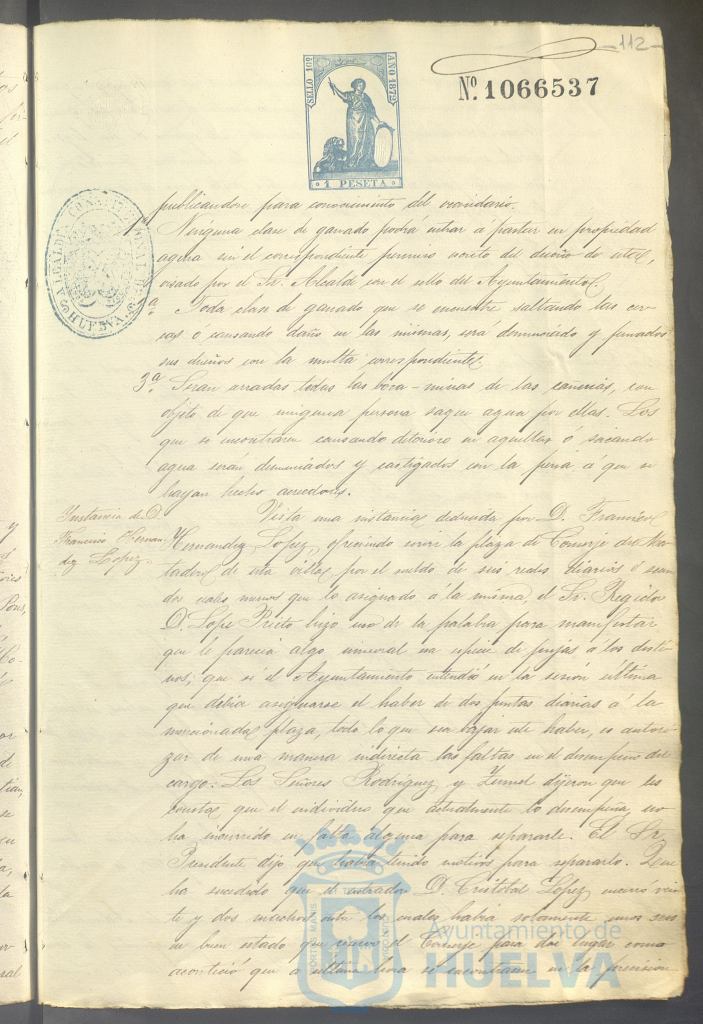 112
Nº 1066537
SELLO 10º AÑO 1872
1 PESETA
ALCALDIA CONSTITUCIONAL DE HUELVA
publicandose para conocimiento del vecindario.
Ninguna clase de ganado podrá entrar á pastar en propiedad
agena sin el correspondiente permiso escrito del dueño de esta,
visado por el Sr. Alcalde con el sello del Ayuntamiento.
Toda clase de ganado que se encuentre saltando las cer-
cas ó causando daño en las mismas, será denunciado y penados
sus dueños con la multa correspondiente.
3ª. Seran cerradas todas las boca-minas de las cañerias, con
objeto de que ninguna persona saque agua por ellas. Los
que se encontraren causando deterioro en aquellas ó sacando
agua serán denunciados y castigados con la pena á que se
hayan hecho acreedores.
Instancia de D.
Francisco Hernan-
dez Lopez.
Vista una instancia deducida por D. Francisco
Hernandez Lopez, ofreciendo servir la plaza de Conserje del Ma-
tadero de esta villa, por el sueldo de seis reales diarios ó sean
dos reales menos que lo asignado á la misma, el Sr. Regidor
D. Lope Prieto hizo uso de la palabra para manifestar
que le parecia algo inmoral esa especie de pujas á los desti-
nos; que si el Ayuntamiento entendió en la sesión última
que debia asignarse el haber de dos pesetas diarias á la
mencionada plaza, todo lo que sea bajar este haber, es autori-
zar de una manera indirecta las faltas en el desempeño del
cargo. Los Señores Rodriguez y dijeron que les
consta que el individuo que actualmente lo desempeña no
ha incurrido en falta alguna para separarle. El Sr.
Presidente dijo que habia tenido motivos para separarlo. Que
ha sucedido que el D. Cristóbal Lopez, vein-
te y dos entre los cuales habia solamente unos seis
en buen estado que el Conserje para dar lugar como
aconteció que á última hora se encontrasen en la precision
Ayuntamiento de
HUELVA